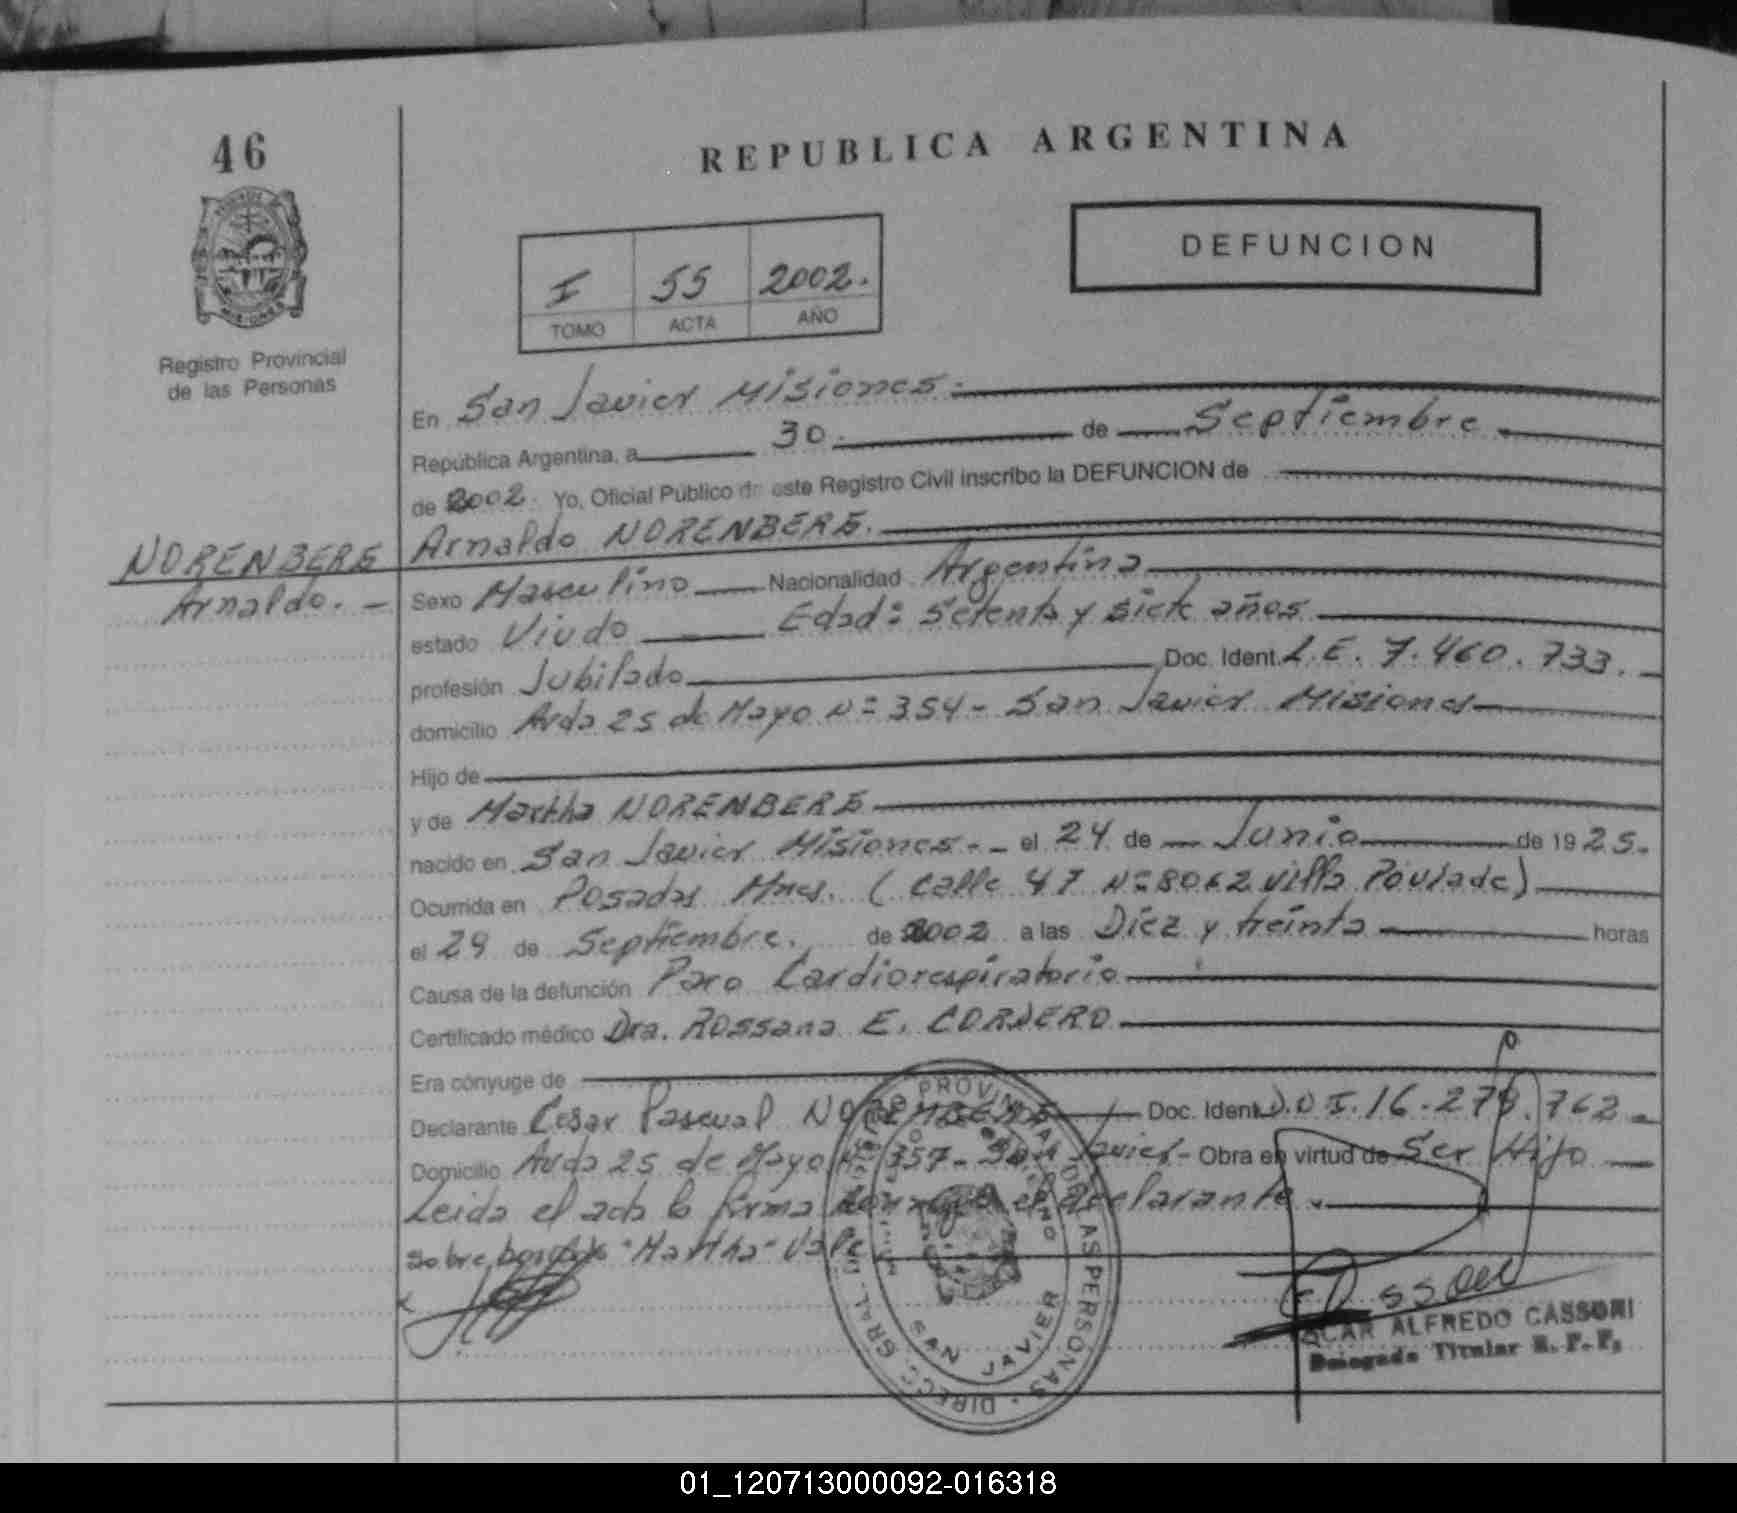 46
REPUBLICA ARGENTINA
DEFUNCION
I 55 2002.
TOMO ACTA AÑO
Registro Provincial
de las Personas
En San Javier Misiones.
República Argentina, a 30. de Septiembre
de 2002. Yo, Oficial Público de este Registro Civil inscribo la DEFUNCION de
NORENBERG Arnaldo NORENBERG.
Arnaldo. -
Sexo Masculino Nacionalidad Argentina
estado Viudo Edad: Setenta y siete años
profesión Jubilado Doc. Ident. L.E. 7.460.733.
domicilio Avda 25 de Mayo Nº 354 - San Javier Misiones
Hijo de
y de Martha NORENBERG
nacido en San Javier Misiones. - el 24 de Junio de 1925.
Ocurrida en Posadas Mnes. (Calle 47 Nº 8062 Villa Poujade)
el 29 de Septiembre. de 2002 a las Diez y treinta horas
Causa de la defunción Paro Cardiorespiratorio
Certificado médico Dra. Rossana E. CORDERO
Era cónyuge de
Declarante Cesar Pascual NORENBERG Doc. Ident. D.N.I. 16.278.762
Domicilio Avda 25 de Mayo Nº 357 - San Javier - Obra en virtud de Ser Hijo
Leida el acta la firma conmigo el declarante.
sobre borrado "Martha" Vale
SAN JAVIER
OSCAR ALFREDO CASSONI
Delegado Titular R. P. P.
01_120713000092-016318